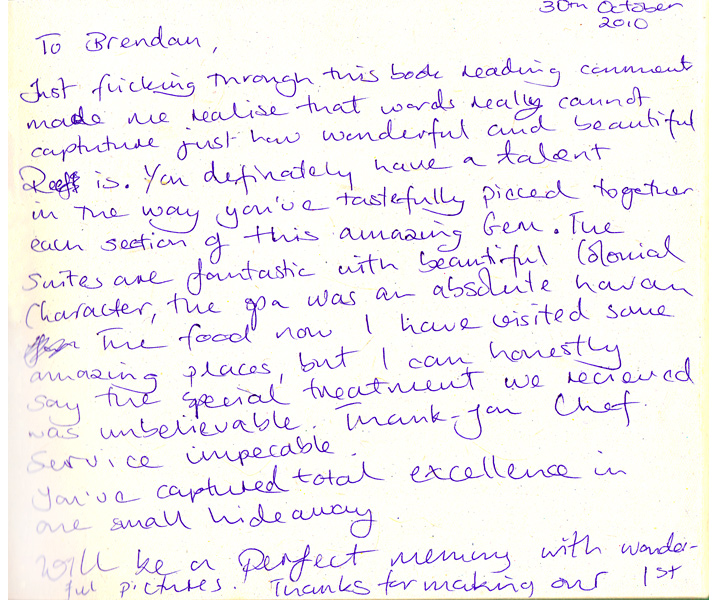 30th October
2010
To Brendan,
Just flicking through this book reading comment
made me realise that words really cannot
captuture just how wonderful and beautiful
Reefs is. You definately have a talent
in the way you've tastefully picced together
each section of this amazing Gem. The
suites are fantastic with beautiful Colonial
Character, the spa was an absolute havan
The food now I have visited some
amazing places, but I can honestly
say the special treatment we recieved
was unbelievable. Thank-you Chef.
Service impecable.
You've captured total excellence in
one small hideaway
Will be a perfect memory with wonder-
ful pictures. Thanks for making our 1st